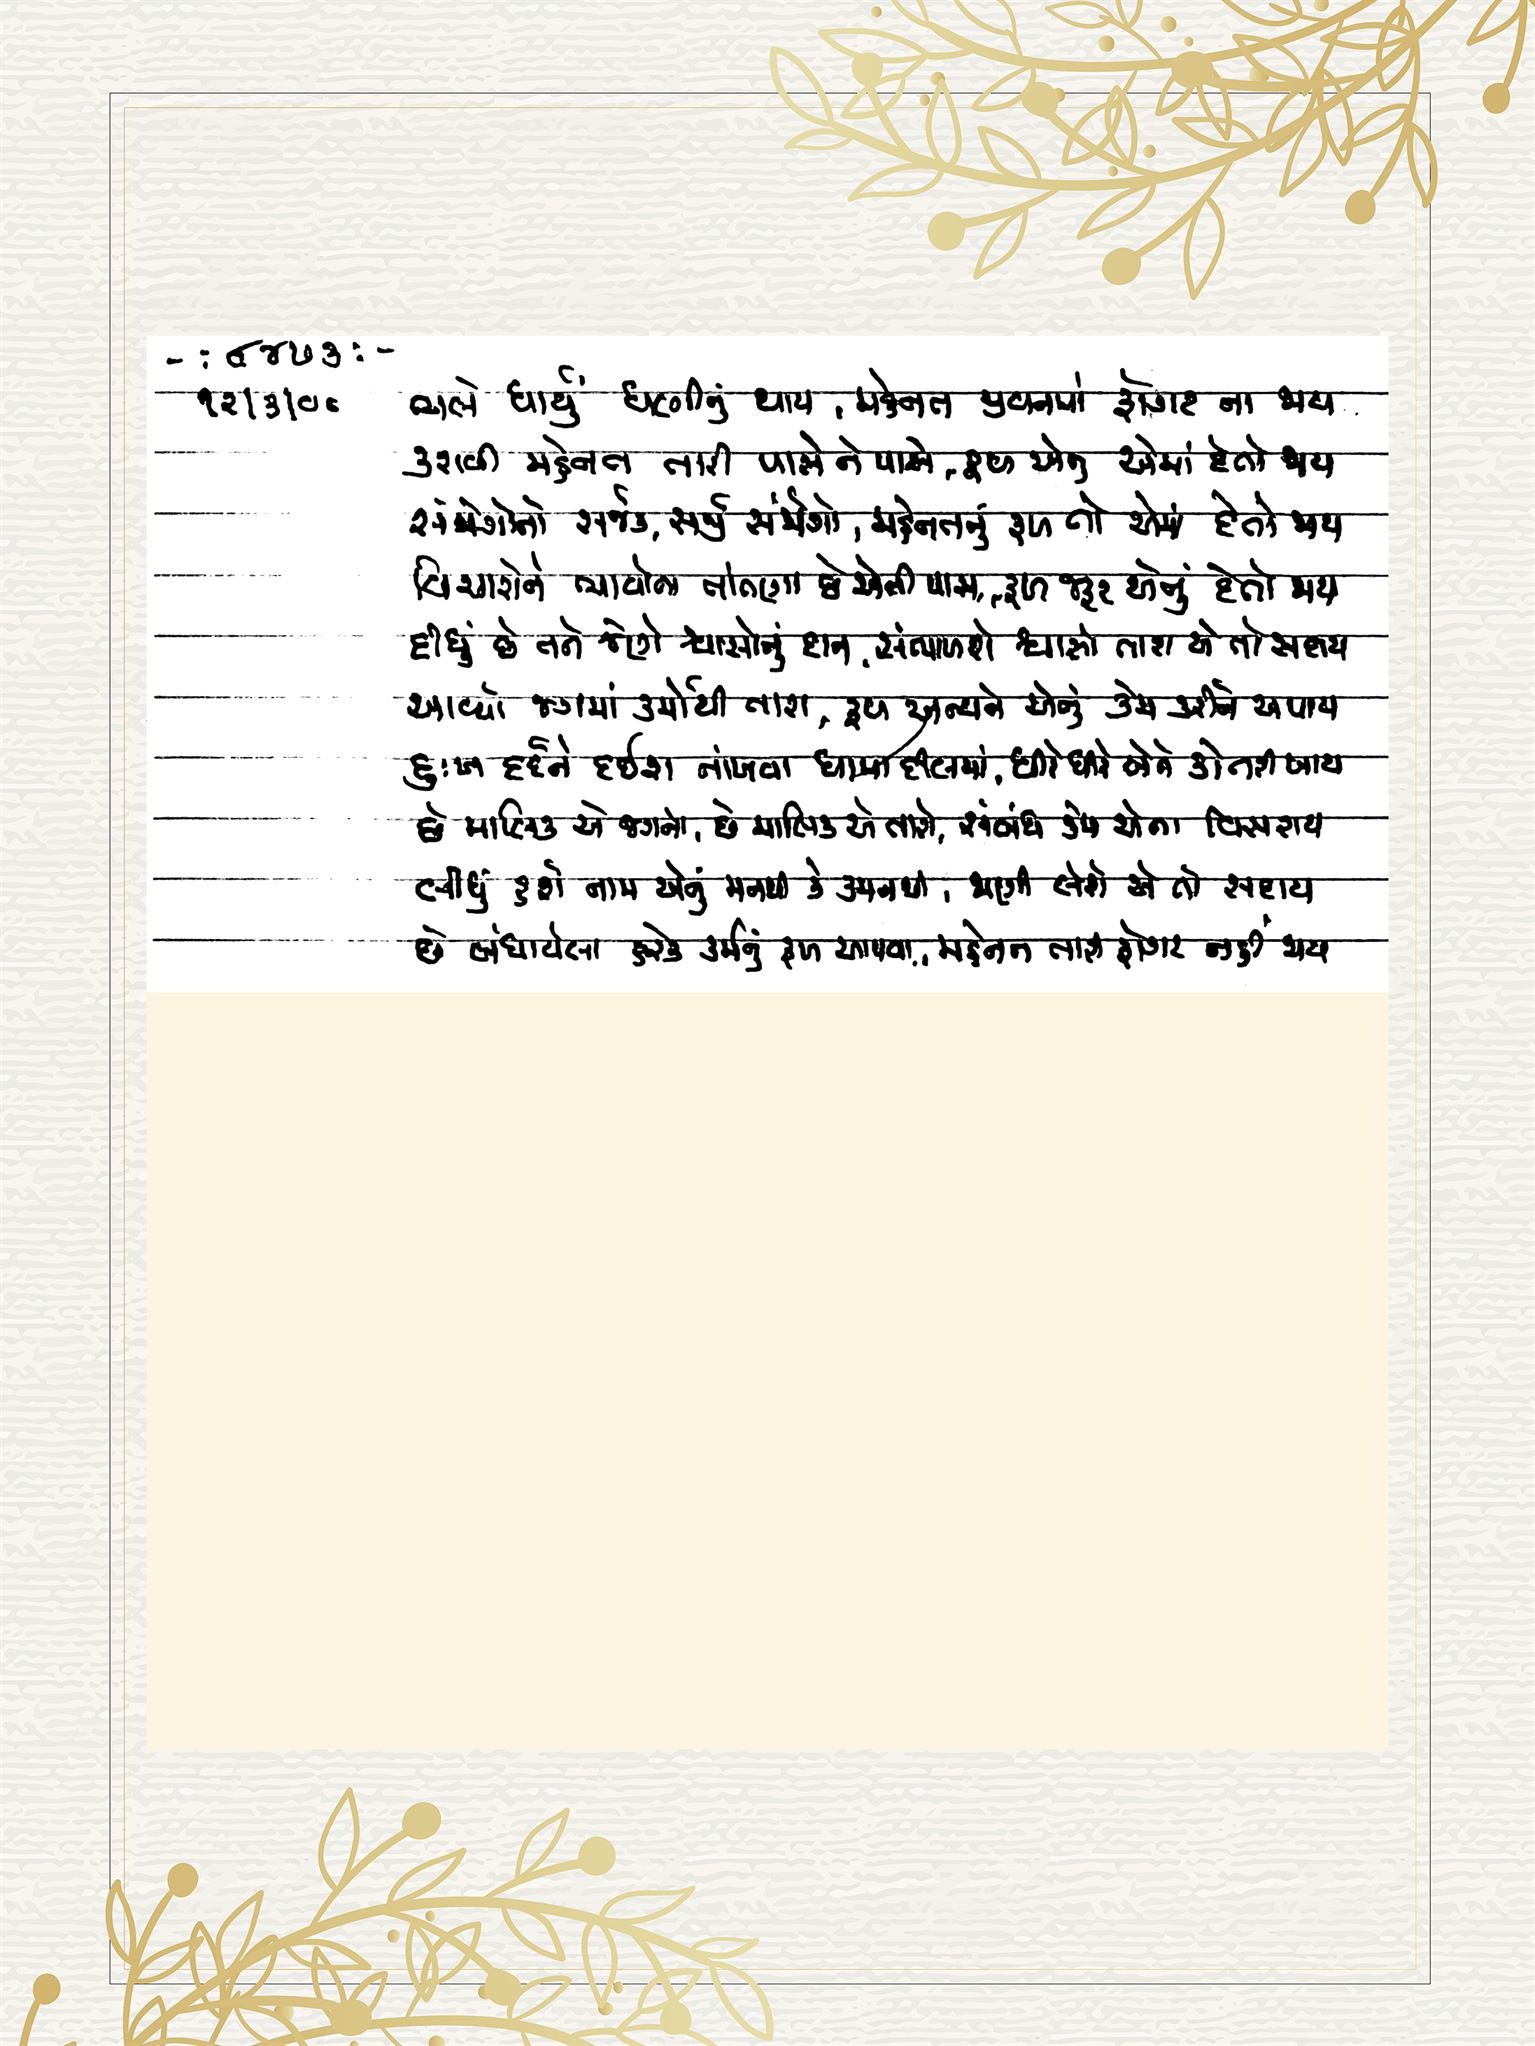 -: ૮૪૭૩ :-
૧૨|૩|૦૦ ભલે ધાર્યું ધણીનું થાય, મહેનત જીવનમાં ફોગટ ના જાય
કરાવી મહેનત તારી પાસે ને પાસે, ફળ એનું એમાં દેતો જાય
સંજોગોનો સર્જક, સર્જી સંજોગો, મહેનતનું ફળ તો એમાં દેતો જાય
વિચારોને ભાવોના તાંતણા છે એની પાસ, ફળ જરૂર એનું દેતો જાય
દીધું છે તને જેણે શ્વાસોનું દાન, સંભાળશે શ્વાસો તારા એ તો સદાય
આવ્યો જગમાં કર્મોથી તારા, ફળ અન્યને એનું કેમ કરીને અપાય
દુઃખ દર્દને દઈશ નાંખવા ધામા દીલમાં, ધીરે ધીરે એને કોતરી ખાય
છે માલિક એ જગનો, છે માલિક એ તારો, સંબંધ કેમ એના વિસરાય
લીધું હશે નામ એનું મનથી કે કમનથી, જાણી લેશે એ તો સદાય
છે બંધાયેલા હરેક કર્મનું ફળ આપવા, મહેનત તારી ફોગટ નહીં જાય